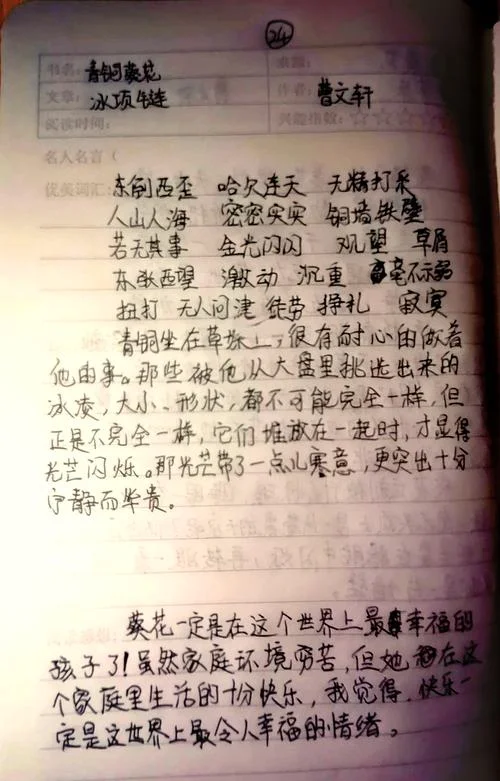 24
书名：青铜葵花
文章：冰项链 作者：曹文轩
阅读时间： 兴趣指数：☆☆☆☆☆
名人名言（
优美词汇：东倒西歪 哈欠连天 无精打采
人山人海 密密实实 铜墙铁壁
若无其事 金光闪闪 观望 草屑
东张西望 激动 沉重 毫不示弱
扭打 无人问津 徒劳 挣扎 寂寞
青铜坐在草垛上，很有耐心的做着
他由事。那些被他从大盘里挑选出来的
冰凌，大小、形状，都不可能完全一样，但
正是不完全一样，它们堆放在一起时，才显得
光芒闪烁。那光芒带了一点儿寒意，更突出十分
宁静而华贵。
葵花一定是在这个世界上最幸福的
孩子了！虽然家庭环境穷苦，但她在这
个家庭里生活的十分快乐，我觉得，快乐一
定是这世界上最令人幸福的情绪。